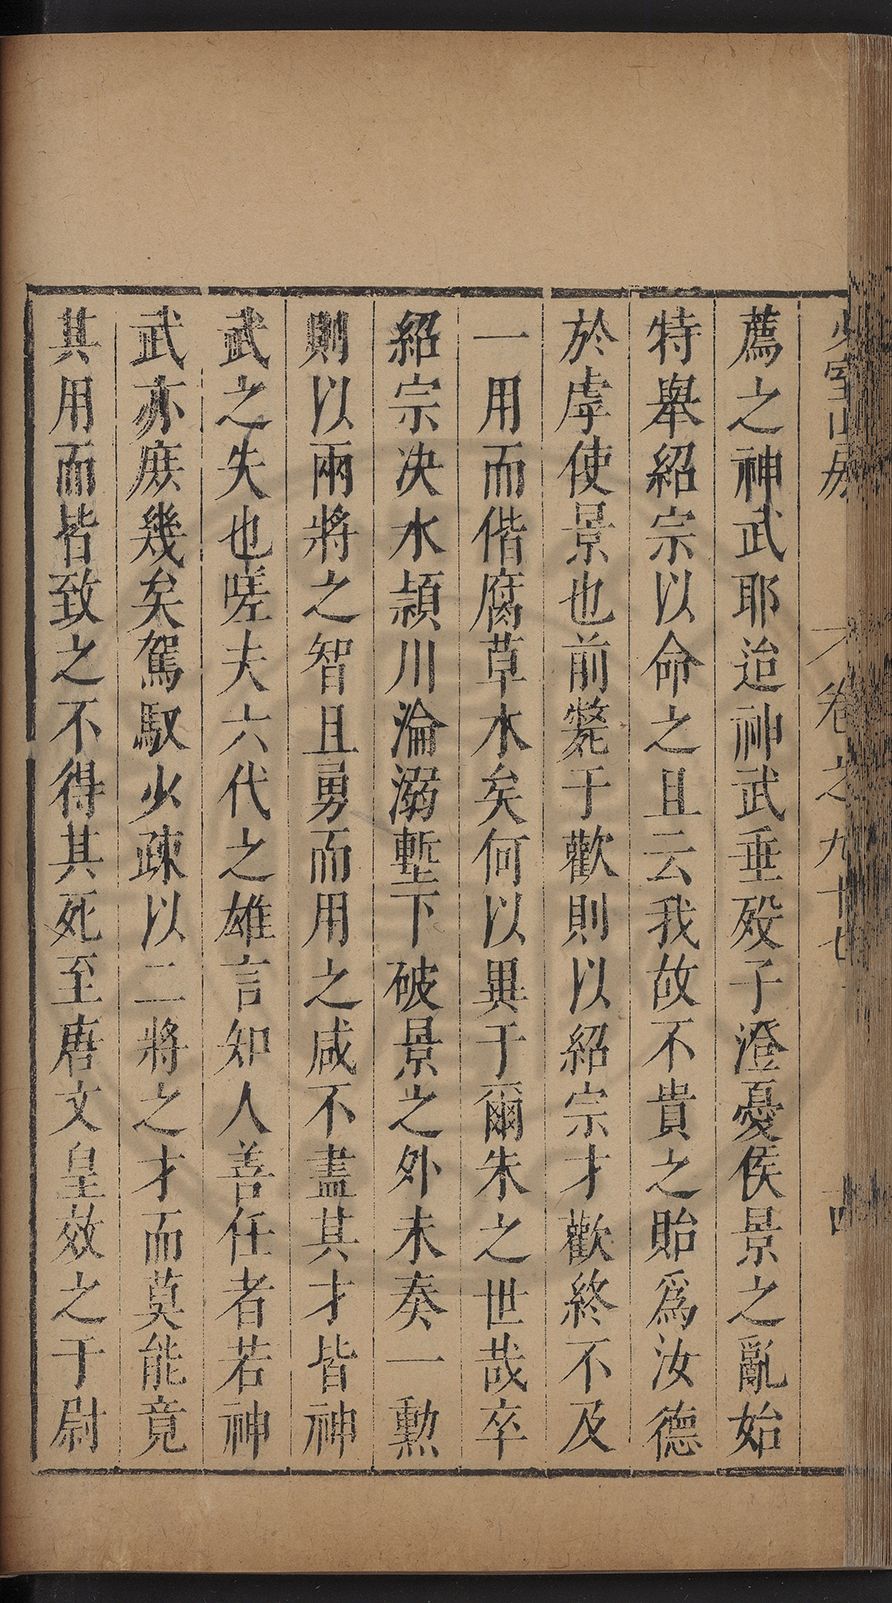 少室山房
卷之九十七
十四
薦之神武耶迨神武垂歿子澄憂侯景之亂始
特舉紹宗以命之且云我故不貴之貽爲汝德
於虖使景也前斃于歡則以紹宗才歡終不及
一用而偕腐草木矣何以異于爾朱之世哉卒
紹宗决水頴川淪溺塹下破景之外未奏一勲
則以兩將之智且勇而用之咸不盡其才皆神
武之失也嗟夫六代之雄言知人善任者若神
武亦庶幾矣駕馭少疎以二將之才而莫能竟
其用而皆致之不得其死至唐文皇效之于尉